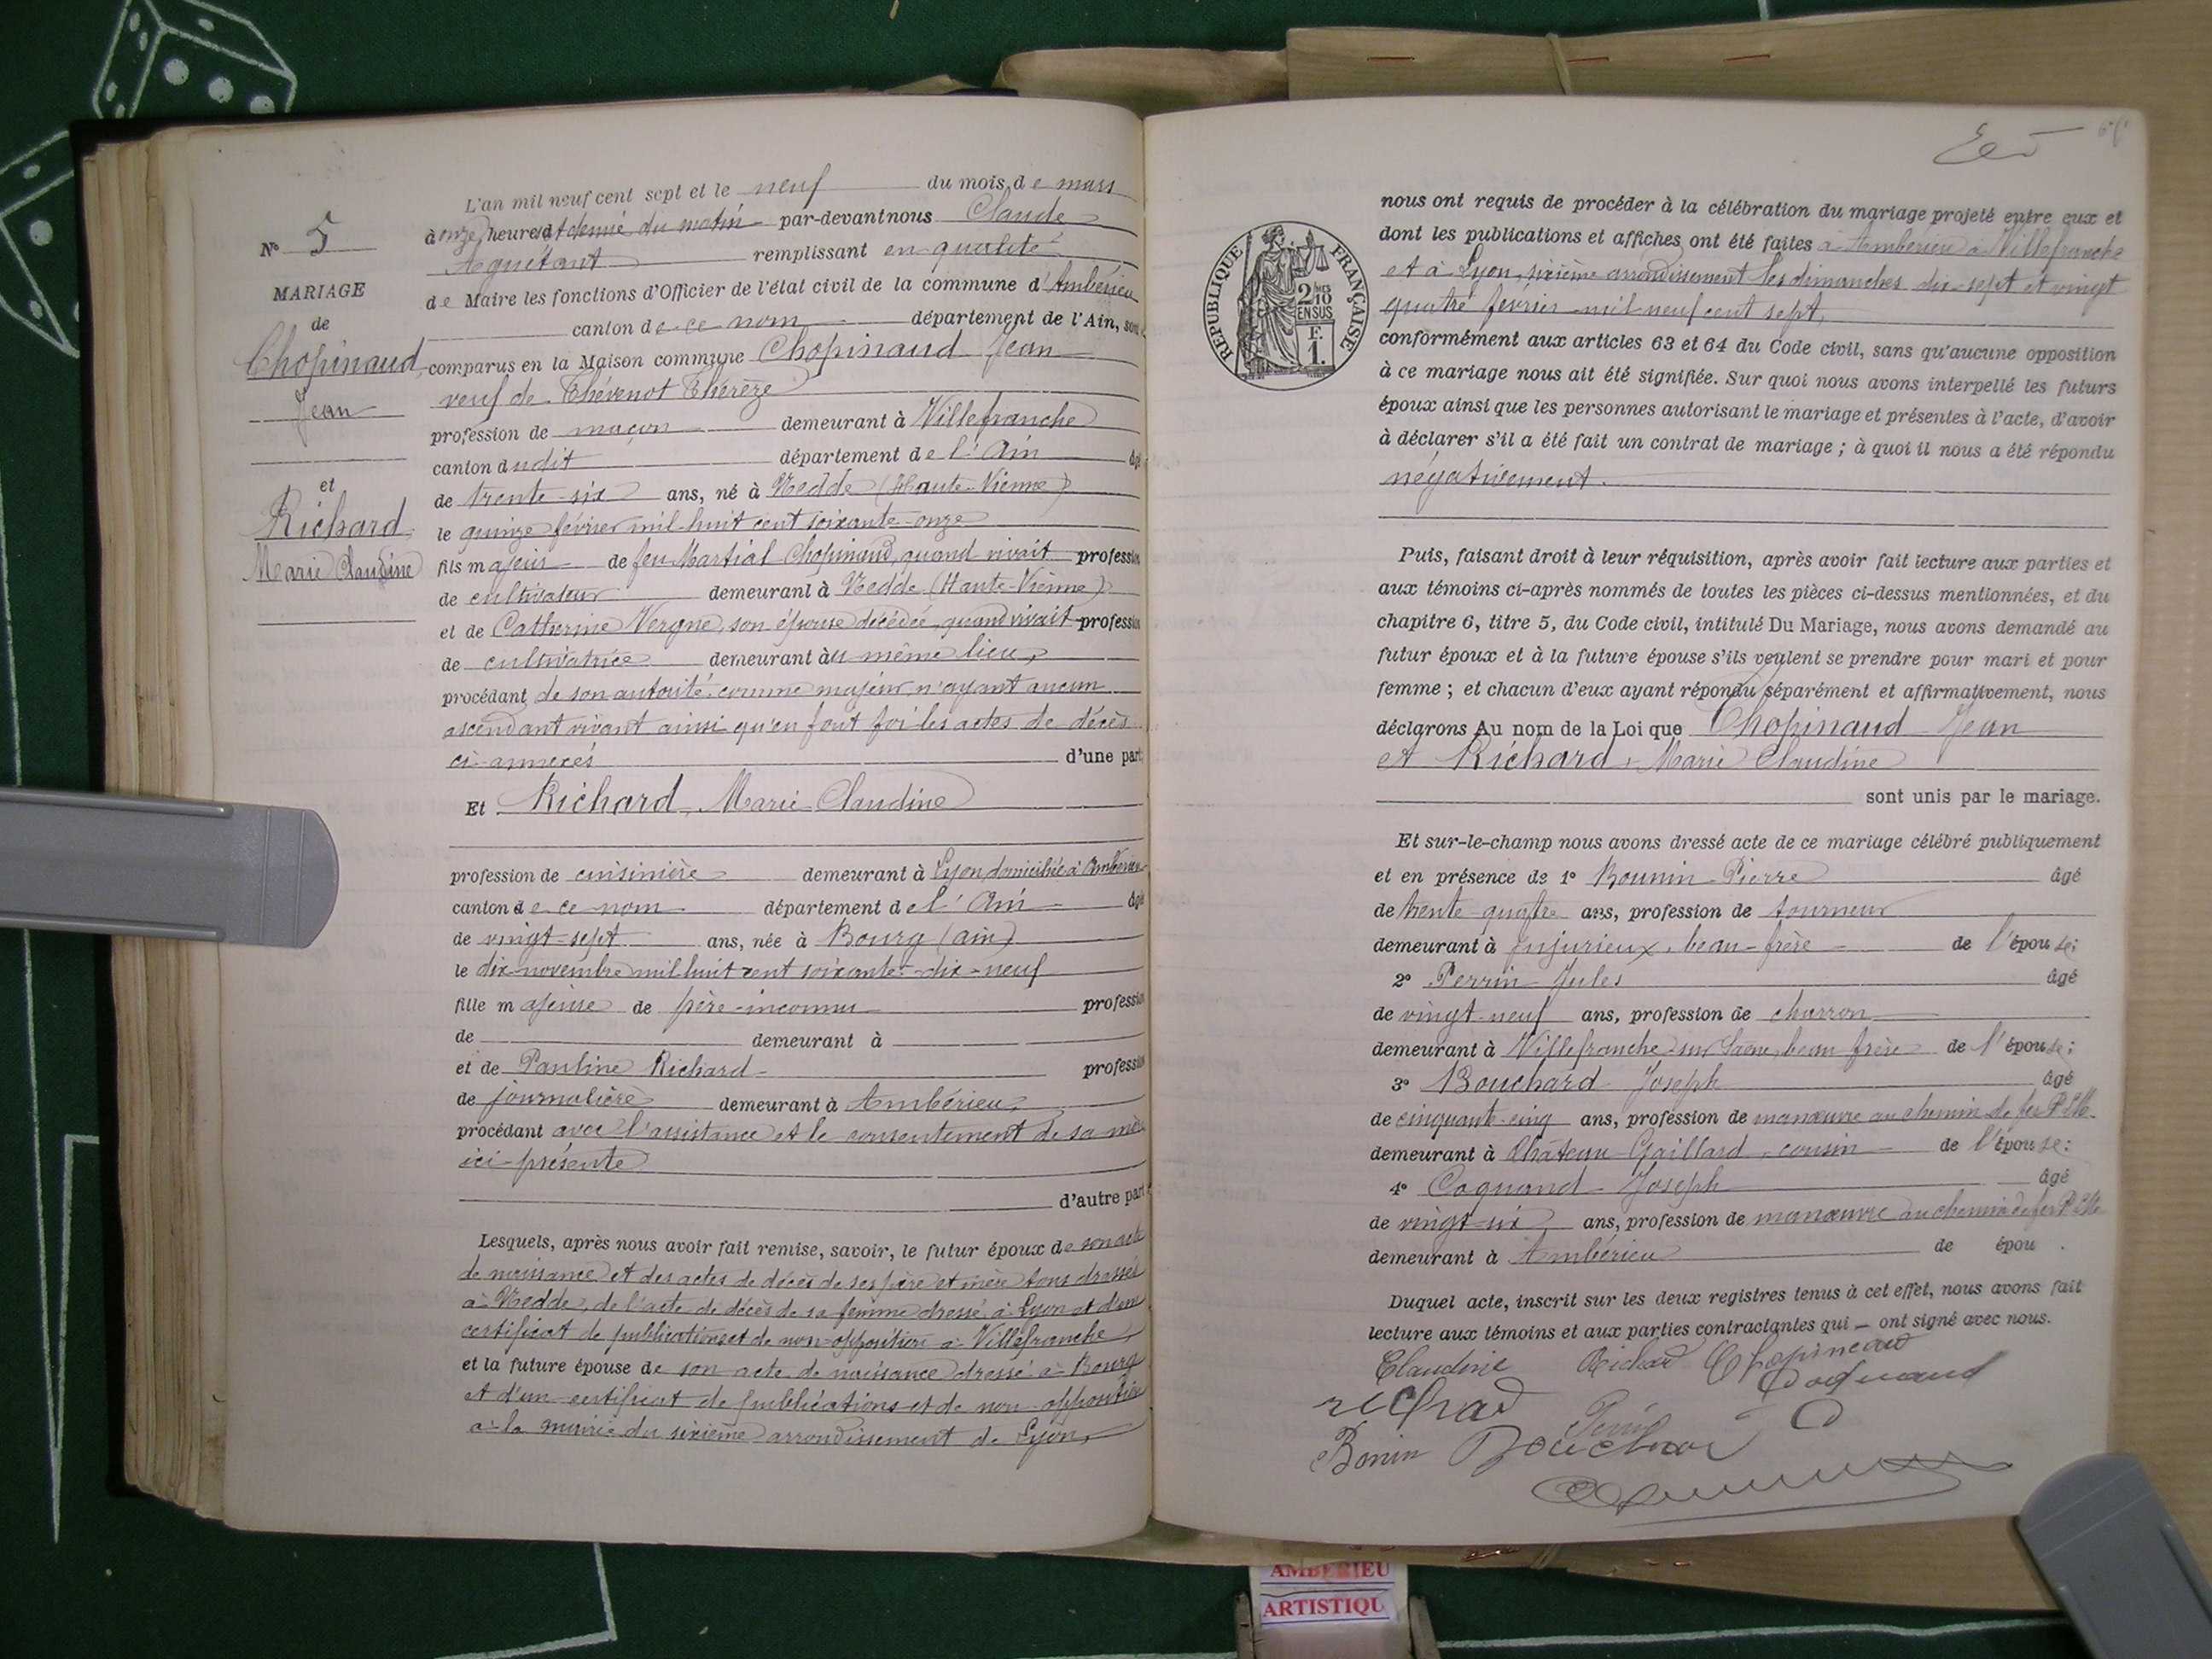 N° 5
MARIAGE
de
Chopinaud
Jean
et
Richard
Marie Claudine
L'an mil neuf cent sept et le neuf du mois de mars
à onze heures et demie du matin par-devant nous Claude
Aguétant remplissant en qualité
de Maire les fonctions d'Officier de l'état civil de la commune d'Ambérieu
canton de ce nom département de l'Ain, sont
comparus en la Maison commune Chopinaud Jean
veuf de Thévenot Thérèze
profession de maçon demeurant à Villefranche
canton dudit département de l'Ain âgé
de trente-six ans, né à Nedde (Haute-Vienne)
le quinze février mil-huit cent soixante-onze
fils majeur de feu Martial Chopinaud, quand vivait profession
de cultivateur demeurant à Nedde (Haute-Vienne)
et de Catherine Vergne, son épouse décédée, quand vivait profession
de cultivatrice demeurant au même lieu,
procédant de son autorité comme majeur n'ayant aucun
ascendant vivant ainsi qu'en font foi les actes de décès
ci-annexés d'une part
Et Richard, Marie Claudine
profession de cuisinière demeurant à Lyon domiciliée à Ambérieu
canton de ce nom département de l'Ain âgée
de vingt-sept ans, née à Bourg (ain)
le dix-novembre mil huit cent soixante-dix-neuf
fille majeure de père-inconnu profession
de demeurant à
et de Pauline Richard profession
de journalière demeurant à Ambérieu,
procédant avec l'assistance et le consentement de sa mère
ici-présente
d'autre part
Lesquels, après nous avoir fait remise, savoir, le futur époux de son acte
de naissance et des actes de décès de ses père et mère tous dressés
à Nedde, de l'acte de décès de sa femme dressé à Lyon et d'un
certificat de publications et de non-opposition à Villefranche,
et la future épouse de son acte de naissance dressé à Bourg
et d'un certificat de publications et de non-opposition
à la mairie du sixième arrondissement de Lyon,
RÉPUBLIQUE FRANÇAISE
2/10
EN SUS
F.
1.
nous ont requis de procéder à la célébration du mariage projeté entre eux et
dont les publications et affiches ont été faites à Ambérieu à Villefranche
et à Lyon, sixième arrondissement les dimanches dix-sept et vingt
quatre février mil neuf cent sept,
conformément aux articles 63 et 64 du Code civil, sans qu'aucune opposition
à ce mariage nous ait été signifiée. Sur quoi nous avons interpellé les futurs
époux ainsi que les personnes autorisant le mariage et présentes à l'acte, d'avoir
à déclarer s'il a été fait un contrat de mariage ; à quoi il nous a été répondu
négativement.
Puis, faisant droit à leur réquisition, après avoir fait lecture aux parties et
aux témoins ci-après nommés de toutes les pièces ci-dessus mentionnées, et du
chapitre 6, titre 5, du Code civil, intitulé Du Mariage, nous avons demandé au
futur époux et à la future épouse s'ils veulent se prendre pour mari et pour
femme ; et chacun d'eux ayant répondu séparément et affirmativement, nous
déclarons Au nom de la Loi que Chopinaud Jean
et Richard, Marie Claudine
sont unis par le mariage.
Et sur-le-champ nous avons dressé acte de ce mariage célébré publiquement
et en présence de 1° Bounin Pierre âgé
de trente-quatre ans, profession de tourneur
demeurant à Jujurieux, beau-frère de l'épouse;
2° Perrin Jules âgé
de vingt-neuf ans, profession de charron
demeurant à Villefranche-sur Saône, beau frère de l'épouse;
3° Bouchard Joseph âgé
de cinquante-cinq ans, profession de manœuvre au chemin de fer P L M.
demeurant à Château-Gaillard, cousin de l'épouse:
4° Coquand Joseph âgé
de vingt-six ans, profession de manœuvre au chemin de fer P L M
demeurant à Ambérieu de épou .
Duquel acte, inscrit sur les deux registres tenus à cet effet, nous avons fait
lecture aux témoins et aux parties contractantes qui — ont signé avec nous.
Claudine Richard Chopineaud
Coquand
Bonin Bouchard
AMBERIEU
ARTISTIQU